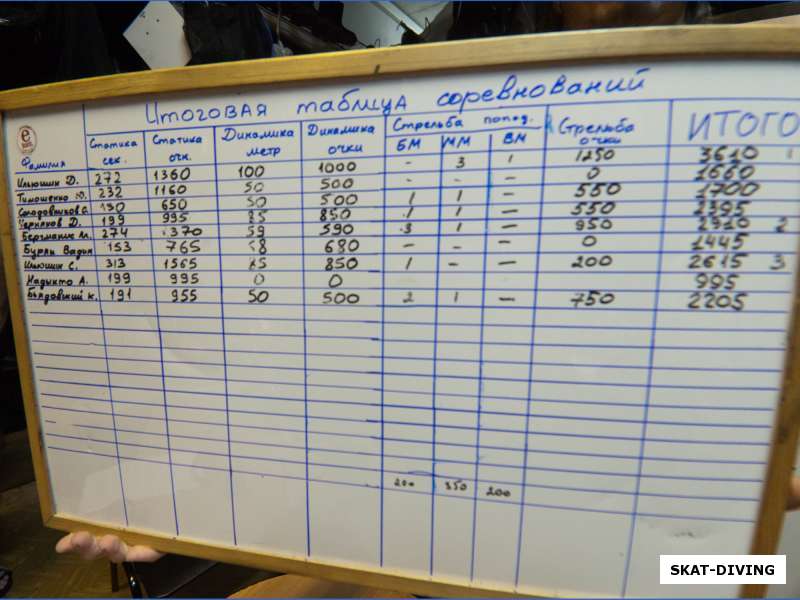 Итоговая таблица соревнований
Фамилия Статика сек. Статика очк. Динамика метр Динамика очки Стрельба попод. БМ ММ ВМ Стрельба очки ИТОГО
Ильюшин Д. 272 1360 100 1000 - 3 1 1250 3610 1
Тимошенко 232 1160 50 500 - - - 0 1660
Солодовников С. 130 650 50 500 1 1 - 550 1700
Черняков Д. 199 995 85 850 1 1 - 550 2395
274 1370 59 590 3 1 - 950 2910 2
Бурлы Вадим 153 765 68 680 - - - 0 1445
Ильюшин С. 313 1565 85 850 1 - - 200 2615 3
Надыкто А. 199 995 0 0 995
191 955 50 500 2 1 - 750 2205
200 350 200
SKAT-DIVING